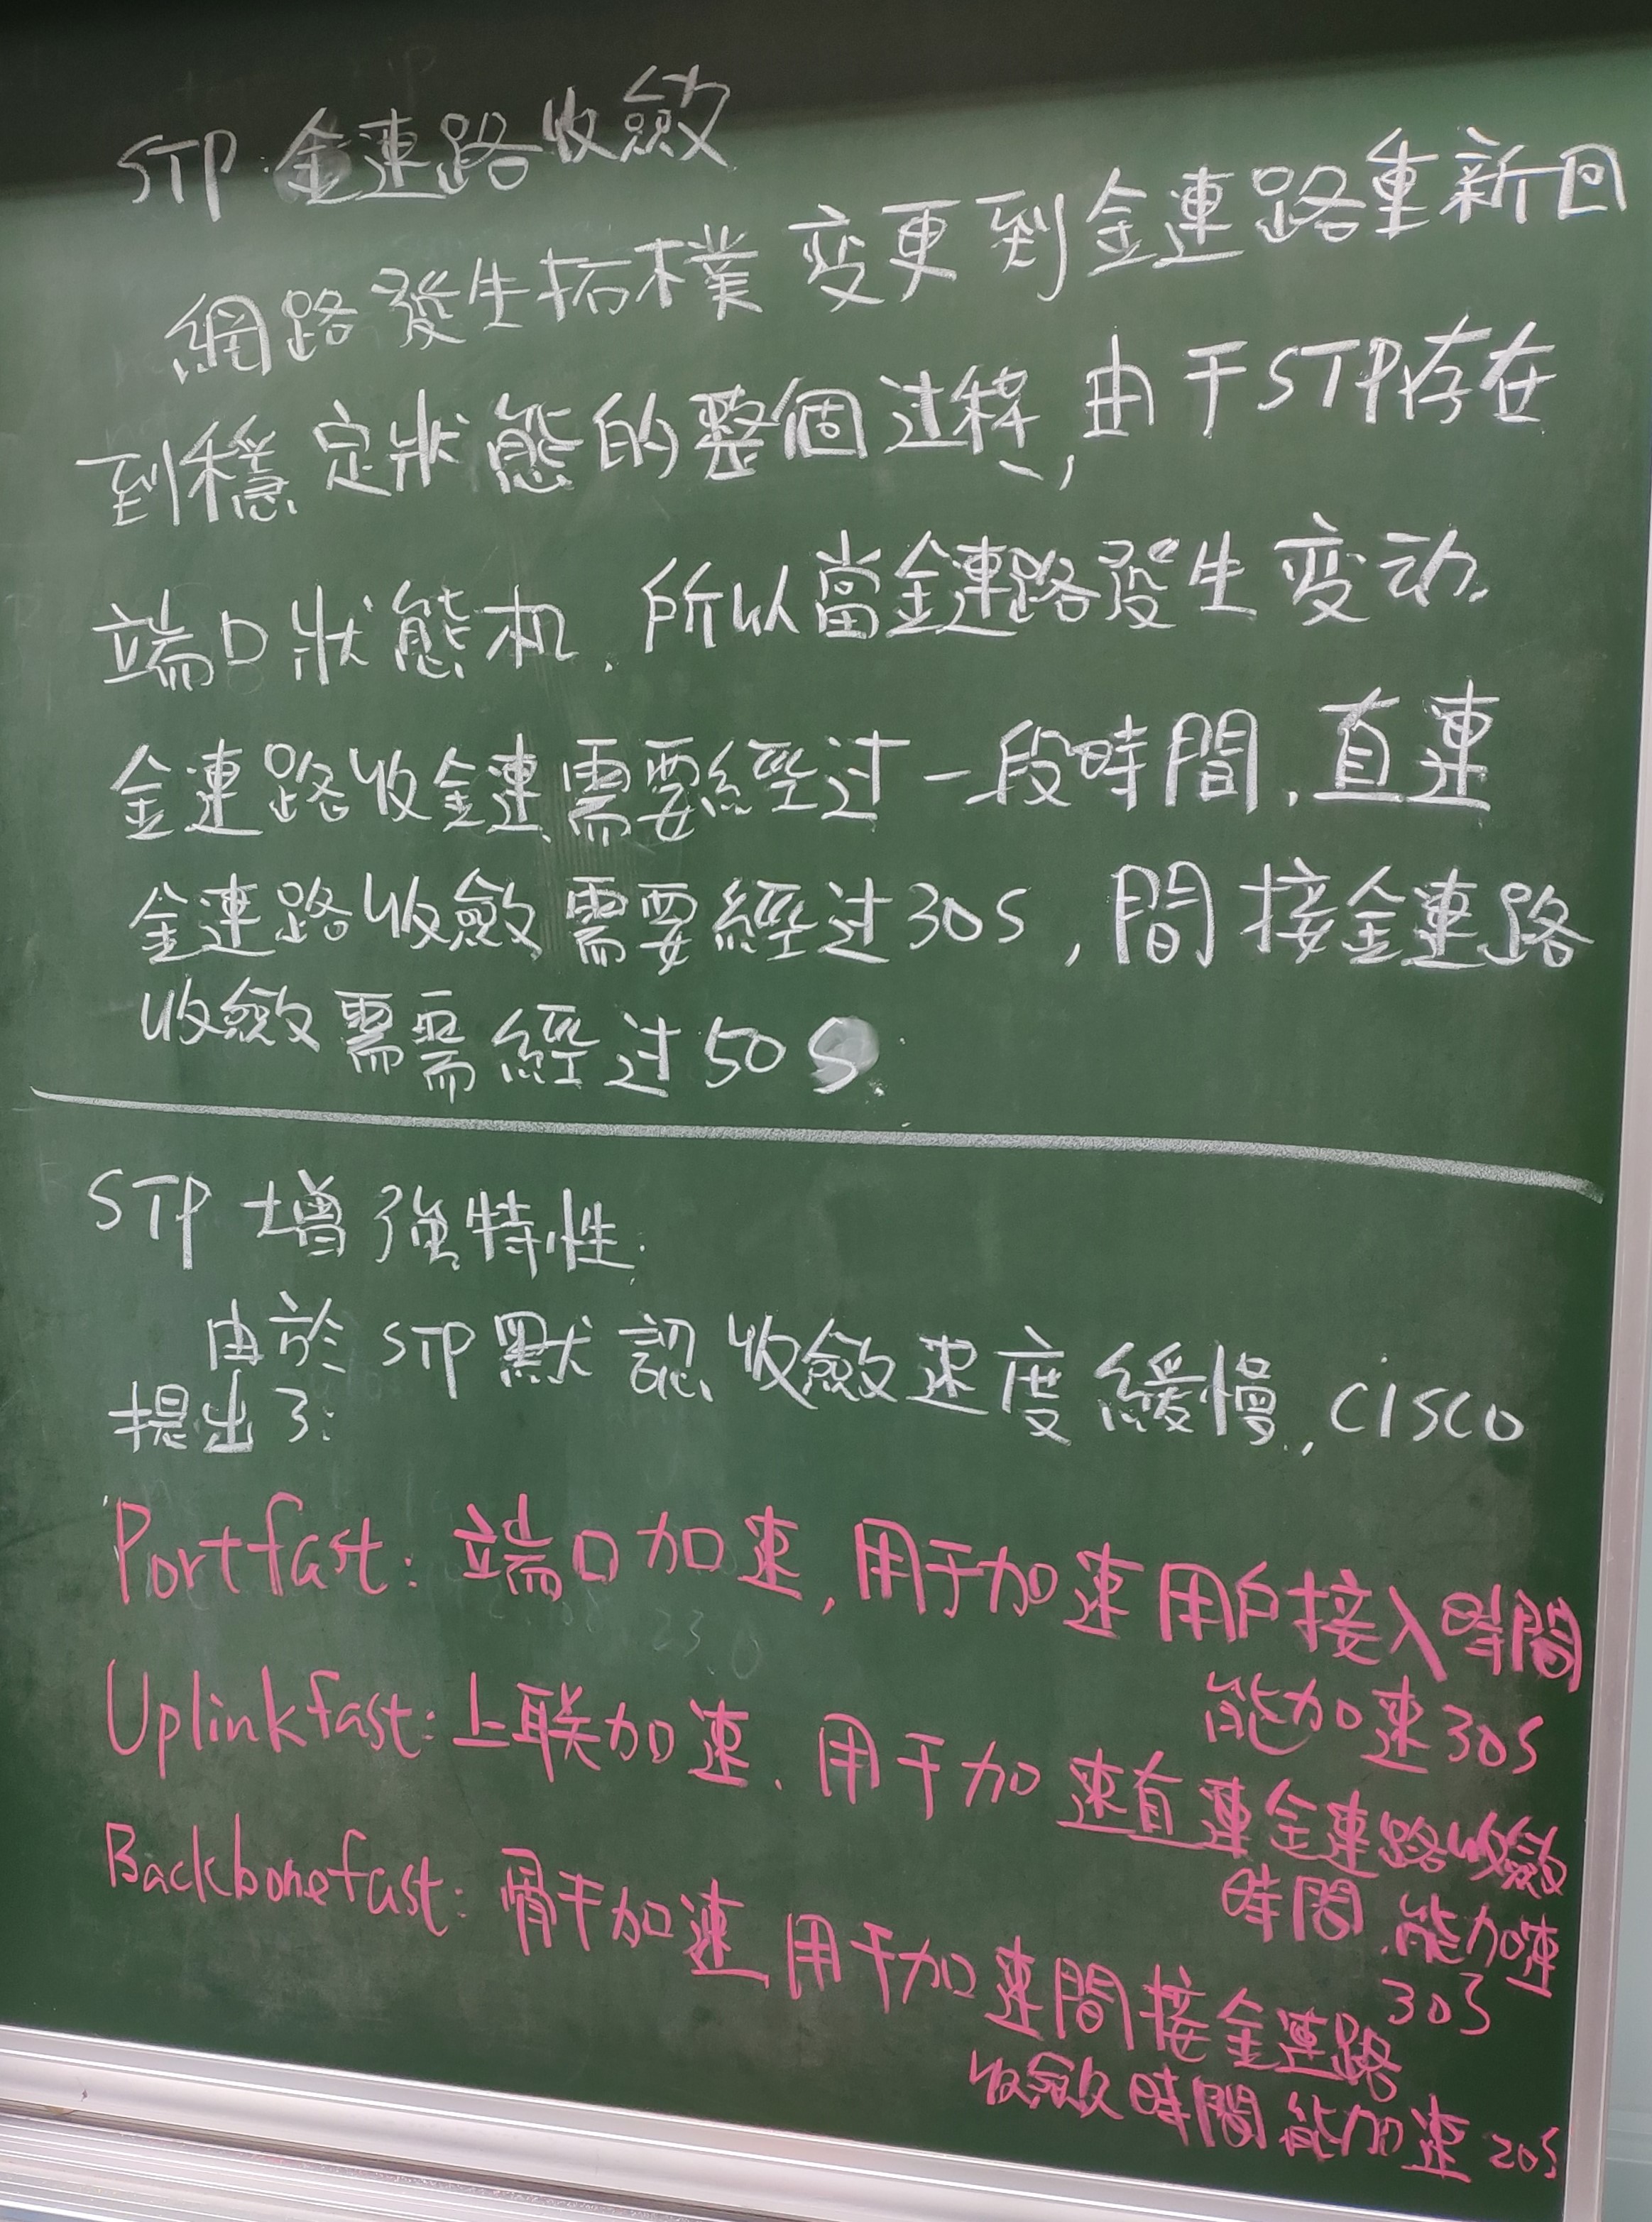 STP:鏈路收斂
網路發生拓樸变更到鏈路重新回
到穩定狀態的整個过程,由于STP存在
端口狀態机,所以當鏈路發生变动,
鏈路收鏈需要經过一段時間,直連
鏈路收斂需要經过30S,間接鏈路
收斂需需經过50S
STP增強特性:
由於STP默認收斂速度緩慢,cisco
提出了:
Portfast:端口加速,用于加速用戶接入時間
能加速30S
Uplinkfast:上联加速、用于加速直連鏈路收斂
時間,能加速
30S
Backbonefast:骨干加速,用于加速間接鏈路
收斂時間能加速20S